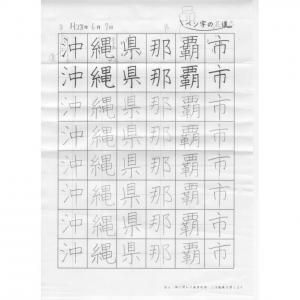 H28年 6月 7日 ペン字の
沖縄県那覇市
沖縄県那覇市
沖縄県那覇市
沖縄県那覇市
沖縄県那覇市
沖縄県那覇市
沖縄県那覇市
沖縄県那覇市